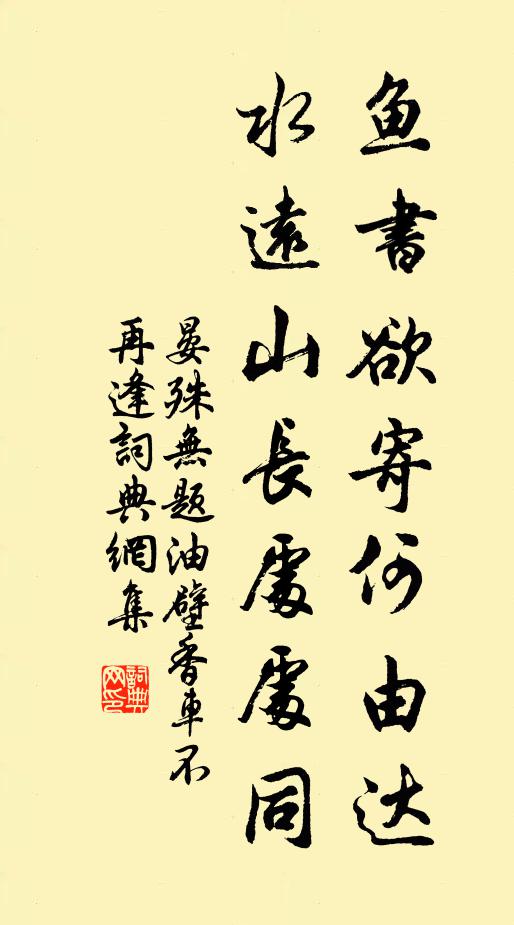 鱼書欲寄何由达
水遠山長處處同
晏殊無题油壁香車不
再逢詞典網集
詞典網印